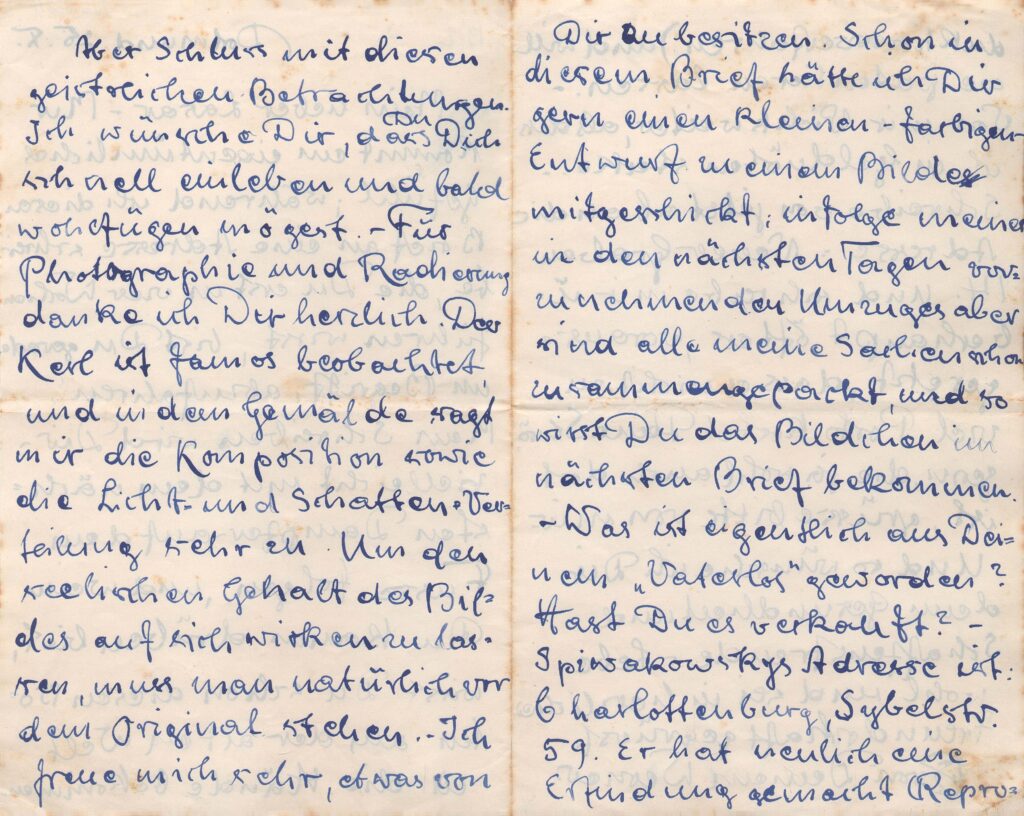 Aber Schluss mit diesen
geistlichen Betrachtungen.
Ich wünsche Dir, dass Du Dich
schnell einleben und bald
wohlfügen mögest. - Für
Photographie und Radierung
danke ich Dir herzlich. Der
Kerl ist famos beobachtet,
und in dem Gemälde sagt
mir die Komposition sowie
die Licht- und Schatten-Ver-
teilung sehr zu. Um den
seelischen Gehalt des Bil-
des auf sich wirken zu las-
sen, muss man natürlich vor
dem Original stehen. - Ich
freue mich sehr, etwas von
Dir zu besitzen. Schon in
diesem Brief hätte ich Dir
gern einen kleinen - farbigen
Entwurf meinem Bilde
mitgeschickt; infolge meines
in den nächsten Tagen vor-
zunehmenden Umzuges aber
sind alle meine Sachen schon
zusammengepackt, und so
wirst Du das Bildchen im
nächsten Brief bekommen.
- Was ist eigentlich aus Dei-
nem „Vaterlos" geworden?
Hast Du es verkauft? -
Spiwakowskys Adresse ist:
Charlottenburg, Sybelstr.
59. Er hat neulich eine
Erfindung gemacht (Repro-